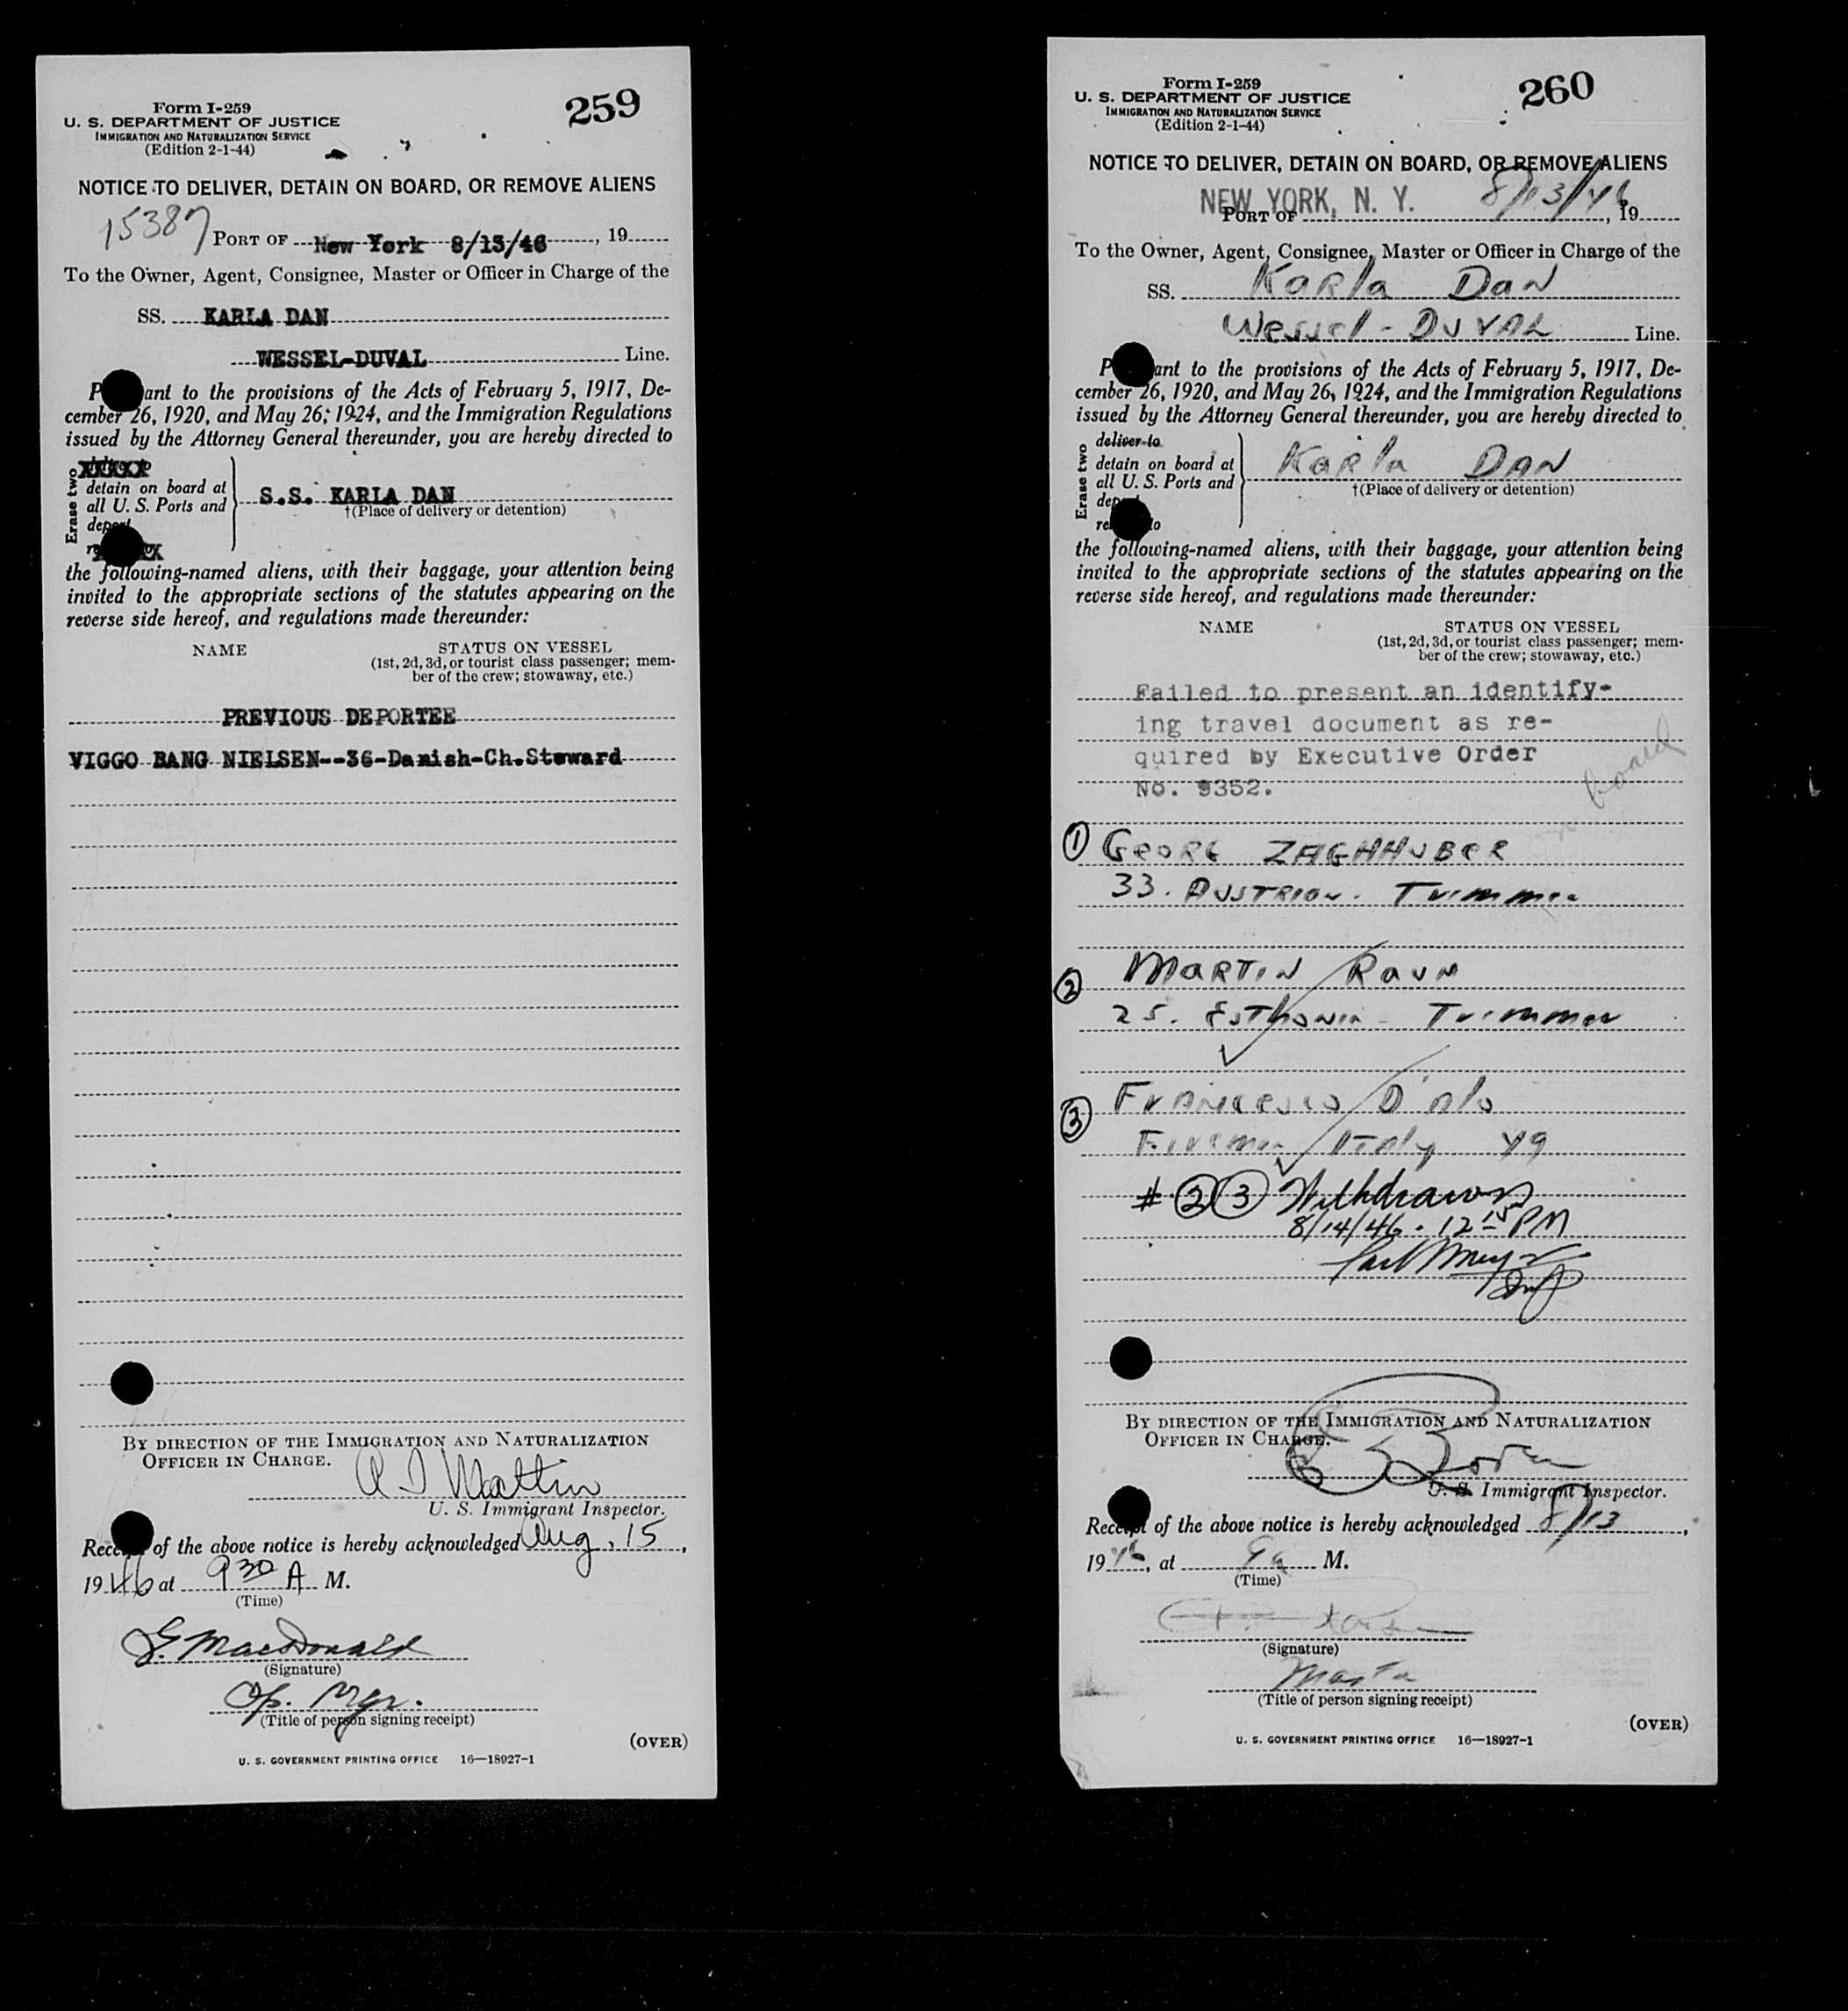 Form I-259
U. S. DEPARTMENT OF JUSTICE
IMMIGRATION AND NATURALIZATION SERVICE
(Edition 2-1-44)
259
NOTICE TO DELIVER, DETAIN ON BOARD, OR REMOVE ALIENS
15387
PORT OF New York 8/13/46, 19
To the Owner, Agent, Consignee, Master or Officer in Charge of the
SS. KARLA DAN
WESSEL-DUVAL Line.
P ant to the provisions of the Acts of February 5, 1917, De-
cember 26, 1920, and May 26, 1924, and the Immigration Regulations
issued by the Attorney General thereunder, you are hereby directed to
Erase two
detain on board at
all U. S. Ports and
deport
S.S. KARLA DAN
†(Place of delivery or detention)
the following-named aliens, with their baggage, your attention being
invited to the appropriate sections of the statutes appearing on the
reverse side hereof, and regulations made thereunder:
NAME
STATUS ON VESSEL
(1st, 2d, 3d, or tourist class passenger; mem-
ber of the crew; stowaway, etc.)
PREVIOUS DEPORTEE
VIGGO BANG NIELSEN--36-Danish-Ch.Steward
BY DIRECTION OF THE IMMIGRATION AND NATURALIZATION
OFFICER IN CHARGE.
U. S. Immigrant Inspector.
Receipt of the above notice is hereby acknowledged Aug. 15,
1946 at 9 30 A M.
(Time)
G. MacDonald
(Signature)
Op. Mgr.
(Title of person signing receipt)
(OVER)
U. S. GOVERNMENT PRINTING OFFICE 16—18927-1
Form I-259
U. S. DEPARTMENT OF JUSTICE
IMMIGRATION AND NATURALIZATION SERVICE
(Edition 2-1-44)
260
NOTICE TO DELIVER, DETAIN ON BOARD, OR REMOVE ALIENS
NEW YORK, N. Y. 8/13/46
PORT OF , 19
To the Owner, Agent, Consignee, Master or Officer in Charge of the
SS. Karla Dan
Wessel-Duval Line.
P ant to the provisions of the Acts of February 5, 1917, De-
cember 26, 1920, and May 26, 1924, and the Immigration Regulations
issued by the Attorney General thereunder, you are hereby directed to
Erase two
deliver to
detain on board at
all U. S. Ports and
Karla Dan
†(Place of delivery or detention)
the following-named aliens, with their baggage, your attention being
invited to the appropriate sections of the statutes appearing on the
reverse side hereof, and regulations made thereunder:
NAME
STATUS ON VESSEL
(1st, 2d, 3d, or tourist class passenger; mem-
ber of the crew; stowaway, etc.)
Failed to present an identify-
ing travel document as re-
quired by Executive Order
No. 9352.
board
1 GEORG ZAGHHUBER
33. Austrian. Trimmer
2 MARTIN Raun
25. Esthonia - Trimmer
3 Francesco D'Alo
Fireman Italy 49
# 2 3 Withdrawn
8/14/46. 12 15 PM
Insp
BY DIRECTION OF THE IMMIGRATION AND NATURALIZATION
OFFICER IN CHARGE.
U. S. Immigrant Inspector.
Receipt of the above notice is hereby acknowledged 8/13,
1946, at 9 a M.
(Time)
(Signature)
Master
(Title of person signing receipt)
(OVER)
U. S. GOVERNMENT PRINTING OFFICE 16—18927-1